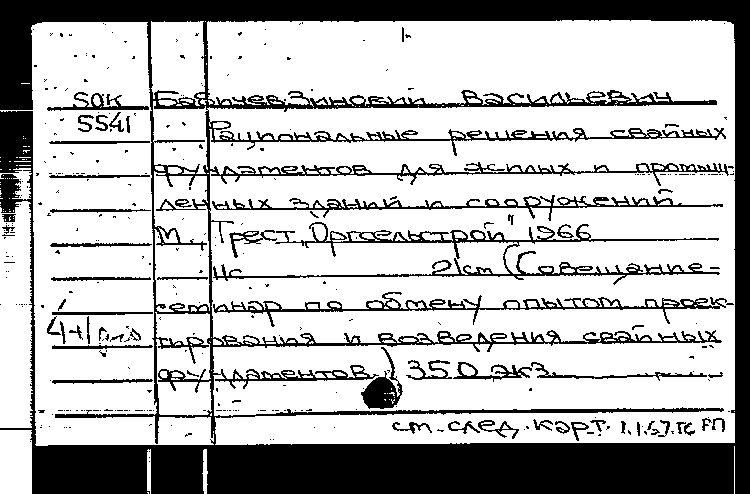 SOK Бабичев, Зиновий Васильевич
5541 Рациональные решения свайных
фундаментов для жилых и промыш-
ленных зданий и сооружений.
М., Трест „Оргсельстрой" 1966
4с 21см (Совещание-
семинар по обмену опытом проек-
тирования и возведения свайных
фундаментов.) 350 экз.
см. след. карт. 1.1.67.